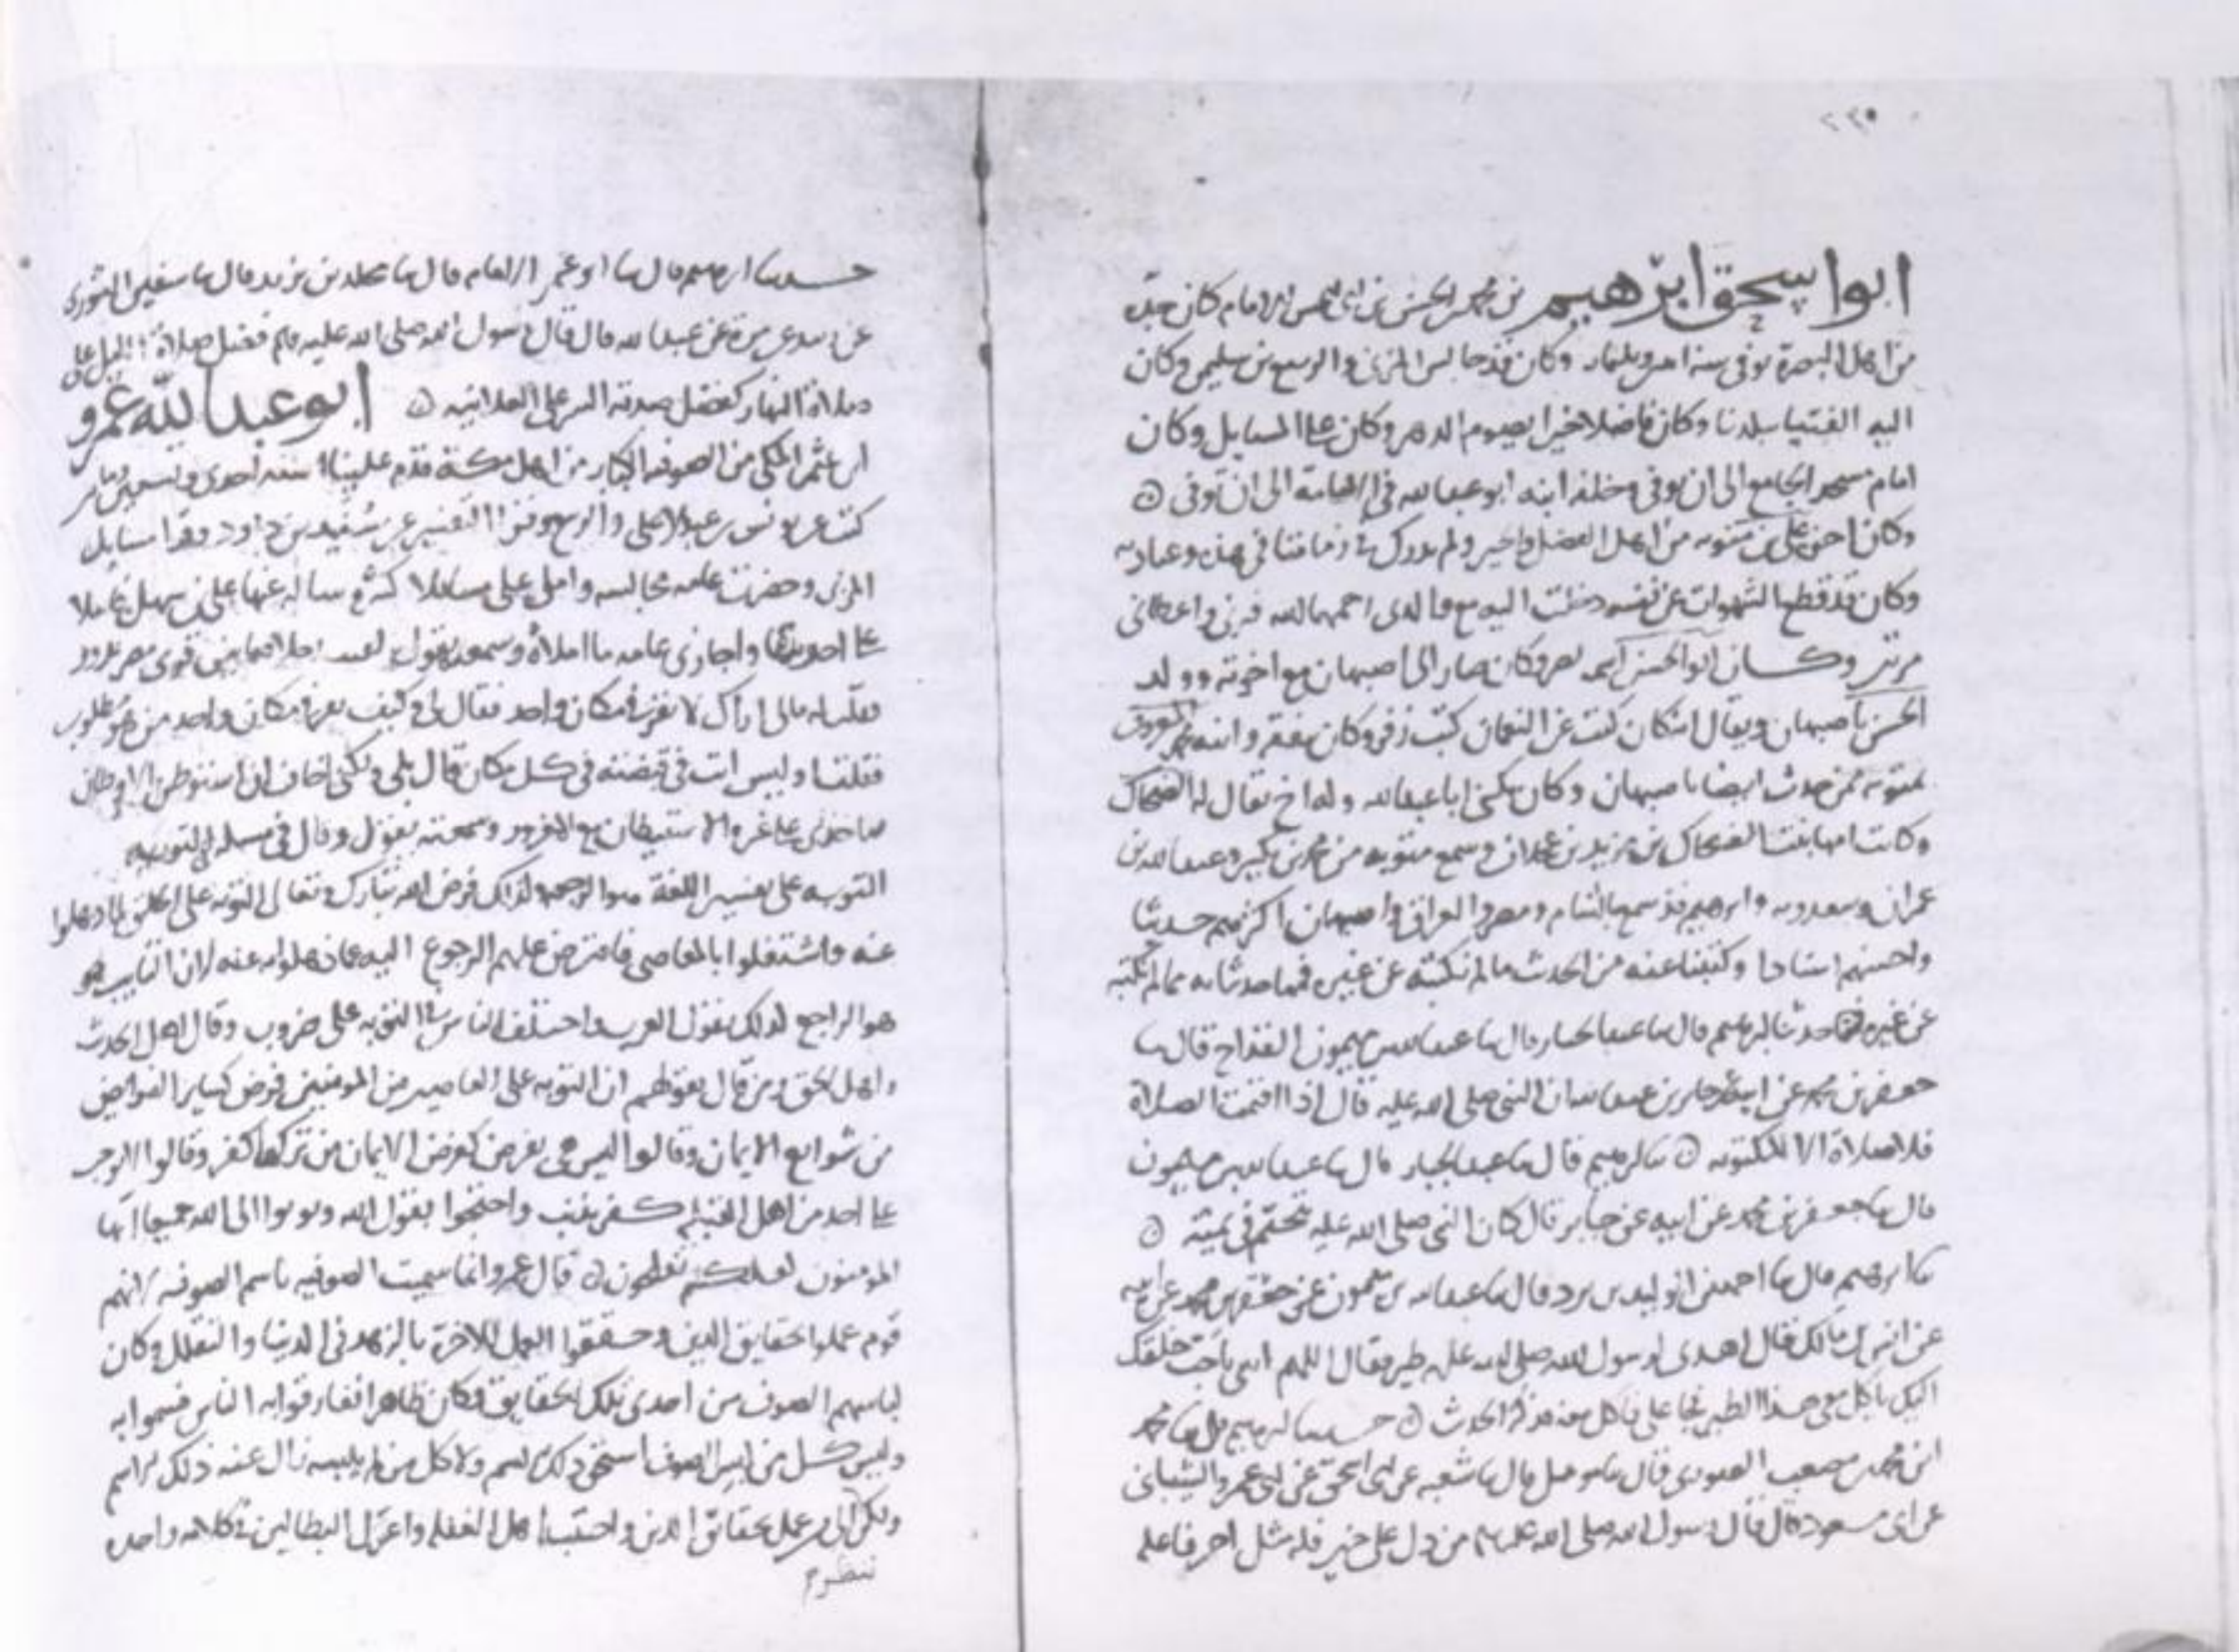 ٢٢٥
ابو اسحق ابرهيم بن محمد بن الحسن بن ابي الحسن الامام كان جده
من اهل البصرة توفي سنة وثلثماية وكان قد جالس المزني والربيع بن سليمن وكان
اليه الفتيا ببلدنا وكان فاضلا خيرا يصوم الدهر وكان على المسايل وكان
امام مسجد الجامع الى ان توفي وخلفه ابنه ابو عبد الله في الامامة الى ان توفي
وكان اخي علي بن متويه من اهل الفضل والخير ولم يدرك في زماننا في وعبادته
وكان قد قطع الشهوات عن نفسه دخلت اليه مع والدي رحمهما الله واعطاني
وكان ابو الحسن وكان صار الى اصبهان مع اخوته وولد
الحسن باصبهان ويقال انه كان كتب عن النعمان كتب زفر وكان يتفقه وابنه محمد المعروف
بمتويه ممن حدث ايضا باصبهان وكان يكنى ابا عبد الله وله اخ يقال له الضحاك
وكانت امها بنت الضحاك بن يزيد بن عجلان وسمع متويه من محمد بن بكير وعبد الله بن
عمران وسعدويه وابرهيم قد سمع بالشام ومصر والعراق واصبهان اكثرهم حديثا
واحسنهم اسنادا وكتبنا عنه من الحديث ما لم نكتبه عن غيره فمما حدثنا به مما لم نكتبه
عن غيره حدثنا ابرهيم قال ثنا عبد الجبار قال ثنا عبد الله بن ميمون القداح قال ثنا
جعفر بن محمد عن ابيه عن جابر بن عبد الله ان النبي صلى الله عليه قال اذا اقيمت الصلاة
فلا صلاة الا المكتوبه ثنا ابرهيم قال ثنا عبد الجبار قال ثنا عبد الله بن ميمون
قال ثنا جعفر بن محمد عن ابيه عن جابر قال كان النبي صلى الله عليه يتختم في يمينه
ثنا ابرهيم قال ثنا احمد بن الوليد بن برد قال ثنا عبد الله بن ميمون عن جعفر بن محمد عن ابيه
عن انس بن مالك قال اهدي لرسول الله صلى الله عليه طير فقال اللهم ائتني باحب خلقك
اليك ياكل معي هذا الطير فجا علي فاكل معه فذكر الحديث حدثنا ابرهيم قال ثنا محمد
ابن محمد بن مصعب الصوري قال ثنا مومل قال ثنا شعبه عن ابي اسحق عن ابي عمرو الشيباني
عن ابي مسعود قال قال رسول الله صلى الله عليه وسلم من دل على خير فله مثل اجر فاعله
حدثنا ابرهيم قال ثنا ابو عمر الامام قال ثنا مخلد بن يزيد قال ثنا سفين الثوري
عن زبيد عن مرة عن عبد الله قال قال رسول الله صلى الله عليه وسلم فضل صلاة الليل على
صلاة النهار كفضل صدقة السر على العلانيه ابو عبد الله عمرو
ابن عثمن المكي من الصوفيه الكبار من اهل مكة قدم علينا سنة احدى وتسعين
كتب عن يونس بن عبد الاعلى والربيع التفسير عن سنيد بن داود وقرا مسايل
المزني وحضرت عامه مجالسه واملى علي مسايلا كثيرة ساله عنها علي بن سهل
على واجاز لي عامه ما املاه وسمعته يقول لقيت رجلا فيما بين قرى مصر يدور
فقلت له مالي اراك لا تقر في مكان واحد فقال لي وكيف يقر في مكان واحد من هو مطلوب
فقلت اوليس انت في قبضته في كل مكان قال بلى ولكني اخاف ان استوطن الاوطان
فياخذني على غرة الاستيطان مع المغرور وسمعته يقول وقال في مسله في التوبه
التوبه على تفسير اللغة هو الرجوع لذلك فرض الله تبارك وتعالى التوبه على الخلق لما ذهلوا
عنه واشتغلوا بالمعاصي فافترض عليهم الرجوع اليه عما ذهلوا به عنه لان التايب هو
هو الراجع لذلك تقول العرب واختلف الناس في التوبه على ضروب وقال اهل الحديث
واهل الحق ومن قال بقولهم ان التوبه على العاصيين من المومنين فرض كساير الفرايض
من شرايع الايمان وقالوا ليس هي بفرض كفرض الايمان من تركها كفر وقالوا لا يوجب
على احد من اهل القبلة كفر بذنب واحتجوا بقول الله وتوبوا الى الله جميعا ايها
المومنون لعلكم تفلحون قال عمرو وانما سميت الصوفيه باسم الصوفيه لانهم
قوم عملوا بحقايق الدين وحققوا العمل للاخرة بالزهد في الدنيا والتقلل وكان
لباسهم الصوف من احدى تلك الحقايق فكان ظاهرا فعرفوا به الناس فسموا به
وليس كل من لبس الصوف استحق ذلك الاسم ولا كل من لم يلبسه زال عنه ذلك الاسم
ولكن الى من عمل بحقايق الدين واجتنب اهل الغفله واعتزل البطالين في كلامه واحده